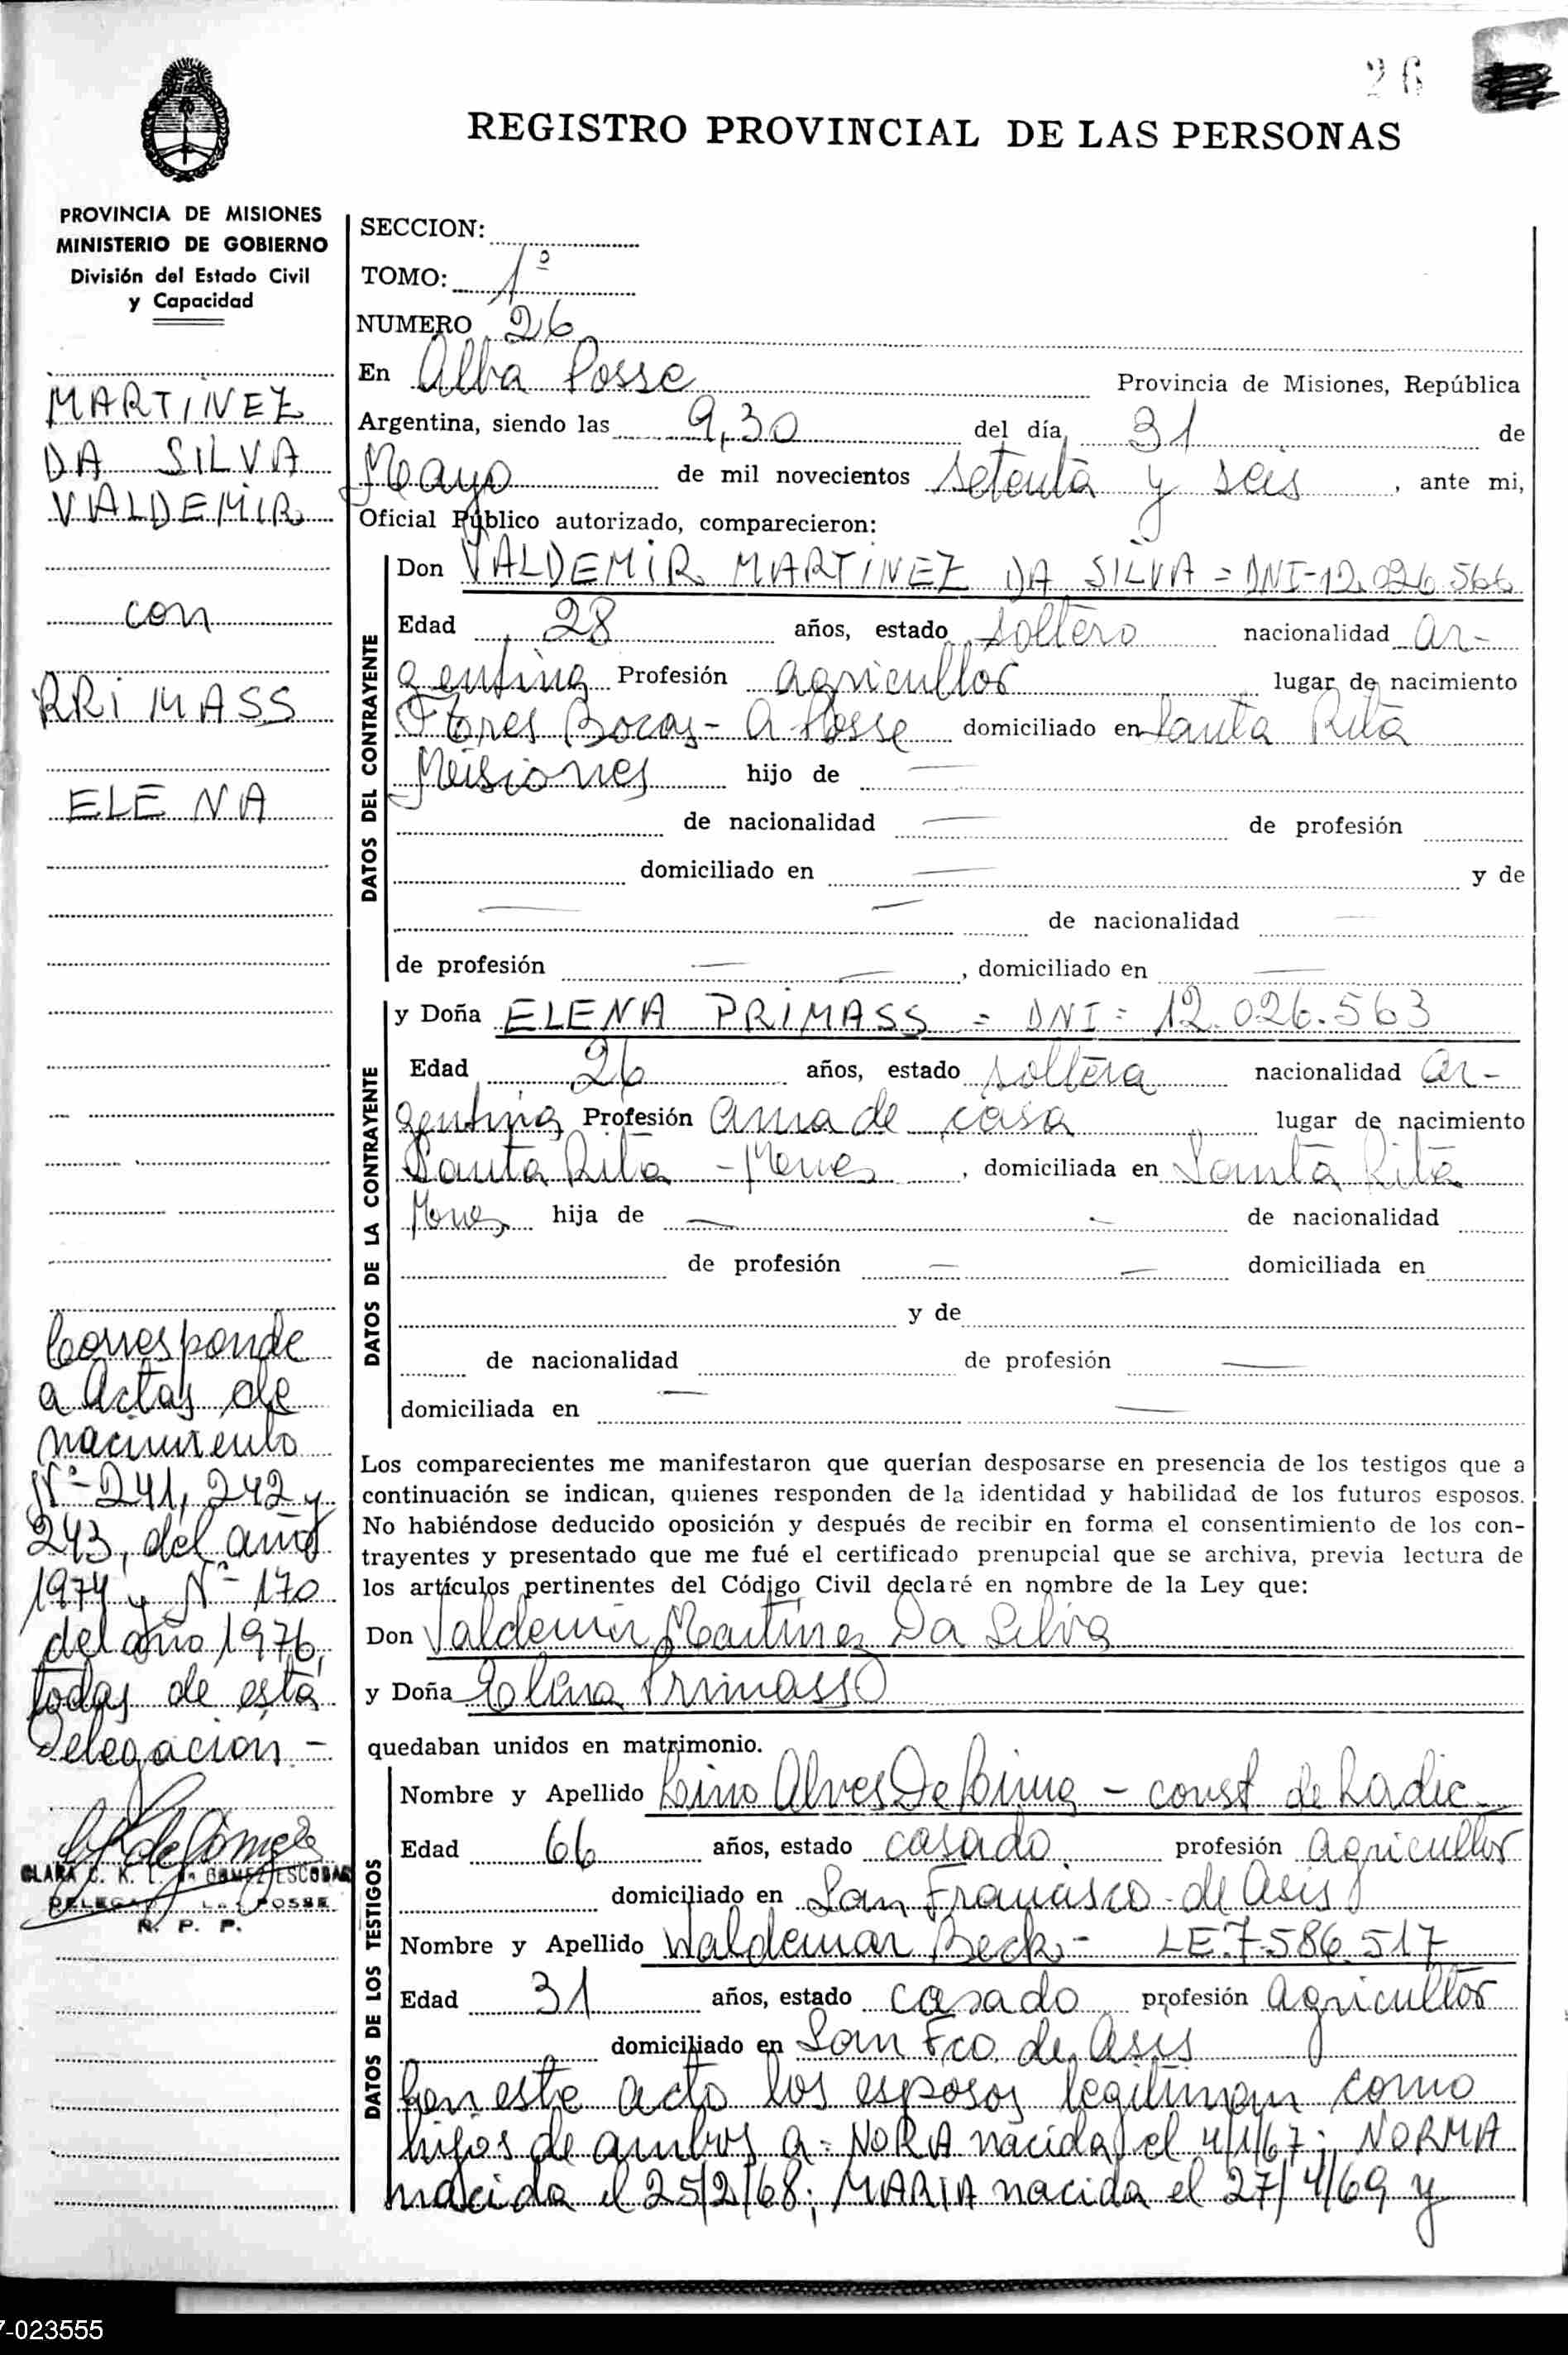 26
REGISTRO PROVINCIAL DE LAS PERSONAS
PROVINCIA DE MISIONES
MINISTERIO DE GOBIERNO
División del Estado Civil
y Capacidad
MARTINEZ
DA SILVA
VALDEMIR
con
PRIMASS
ELENA
Corresponde
a Actas de
nacimiento
Nº 241, 242 y
243, del año
1974 y Nº 170
del año 1976,
todas de esta
Delegación -
CLARA C. K. L. de GOMEZ ESCOBAR
R. P. P.
SECCION:
TOMO: 1º
NUMERO 26
En Alba Posse Provincia de Misiones, República
Argentina, siendo las 9,30 del día 31 de
Mayo de mil novecientos setenta y seis, ante mi,
Oficial Público autorizado, comparecieron:
DATOS DEL CONTRAYENTE
Don VALDEMIR MARTINEZ DA SILVA = DNI-12.026.566
Edad 28 años, estado soltero nacionalidad ar-
gentina Profesión agricultor lugar de nacimiento
Flores Bocas - A Posse domiciliado en Santa Rita
Misiones hijo de —
de nacionalidad — de profesión
domiciliado en — y de
— — de nacionalidad —
de profesión — —, domiciliado en —
DATOS DE LA CONTRAYENTE
y Doña ELENA PRIMASS = DNI= 12.026.563
Edad 26 años, estado soltera nacionalidad ar-
gentina Profesión ama de casa lugar de nacimiento
Santa Rita - Mnes, domiciliada en Santa Rita
Mnes hija de — — de nacionalidad
de profesión — — domiciliada en
y de
de nacionalidad de profesión —
domiciliada en — —
Los comparecientes me manifestaron que querían desposarse en presencia de los testigos que a
continuación se indican, quienes responden de la identidad y habilidad de los futuros esposos.
No habiéndose deducido oposición y después de recibir en forma el consentimiento de los con-
trayentes y presentado que me fué el certificado prenupcial que se archiva, previa lectura de
los artículos pertinentes del Código Civil declaré en nombre de la Ley que:
Don Valdemir Martinez Da Silva
y Doña Elena Primass
quedaban unidos en matrimonio.
DATOS DE LOS TESTIGOS
Nombre y Apellido Lino Alves De Lima - const de Radic.
Edad 66 años, estado casado profesión agricultor
domiciliado en San Francisco de Asis
Nombre y Apellido Waldemar Beck - LE.7.586.517
Edad 31 años, estado casado profesión agricultor
domiciliado en San Fco. de Asis
Con este acto los esposos legitiman como
hijos de ambos a= NORA nacida el 4/1/67; NORMA
nacida el 25/2/68; MARIA nacida el 27/4/69 y
-023555